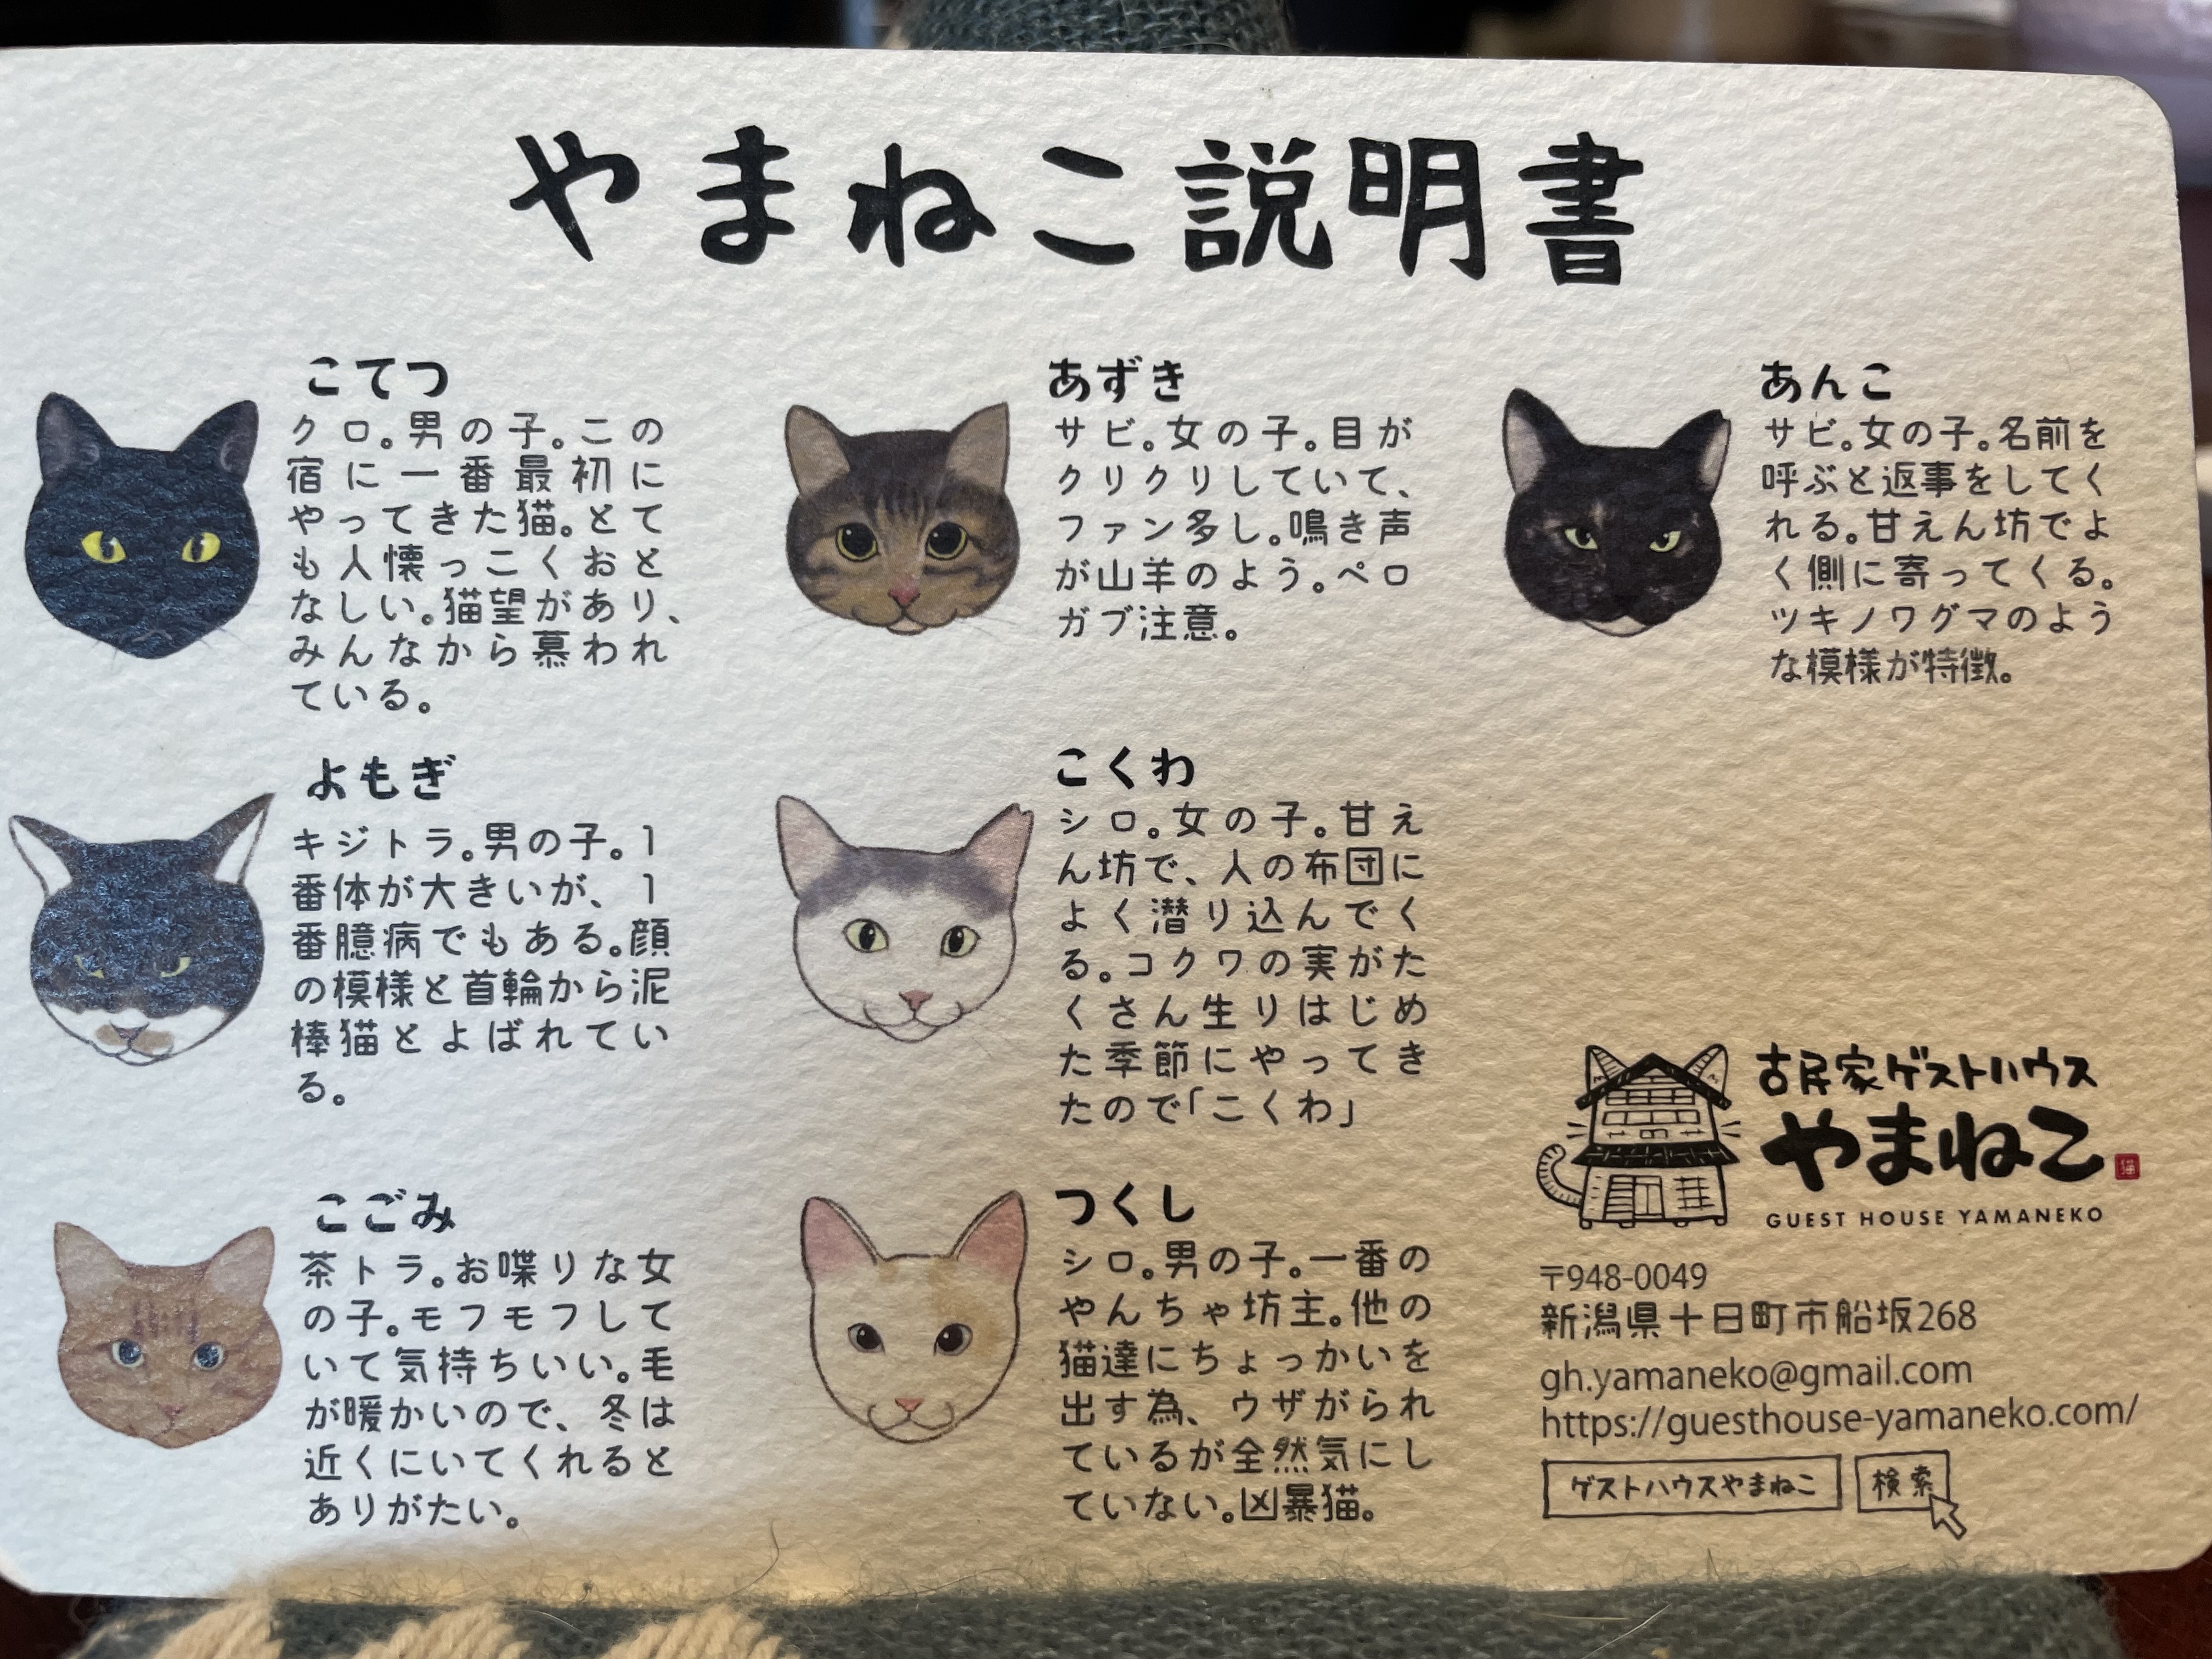 やまねこ説明書
こてつ
クロ。男の子。この
宿に一番最初に
やってきた猫。とて
も人懐っこくおと
なしい。猫望があり、
みんなから慕われ
ている。
あずき
サビ。女の子。目が
クリクリしていて、
ファン多し。鳴き声
が山羊のよう。ペロ
ガブ注意。
あんこ
サビ。女の子。名前を
呼ぶと返事をしてく
れる。甘えん坊でよ
く側に寄ってくる。
ツキノワグマのよう
な模様が特徴。
よもぎ
キジトラ。男の子。1
番体が大きいが、1
番臆病でもある。顔
の模様と首輪から泥
棒猫とよばれてい
る。
こくわ
シロ。女の子。甘え
ん坊で、人の布団に
よく潜り込んでく
る。コクワの実がた
くさん生りはじめ
た季節にやってき
たので「こくわ」
こごみ
茶トラ。お喋りな女
の子。モフモフして
いて気持ちいい。毛
が暖かいので、冬は
近くにいてくれると
ありがたい。
つくし
シロ。男の子。一番の
やんちゃ坊主。他の
猫達にちょっかいを
出す為、ウザがられ
ているが全然気にし
ていない。凶暴猫。
古民家ゲストハウス
やまねこ
猫
GUEST HOUSE YAMANEKO
〒948-0049
新潟県十日町市船坂268
gh.yamaneko@gmail.com
https://guesthouse-yamaneko.com/
ゲストハウスやまねこ 検索